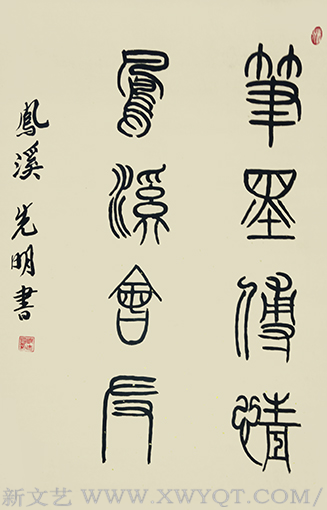 筆墨傳情
鳳溪會友
鳳溪 先明書
新文艺 WWW.XWYQT.COM/